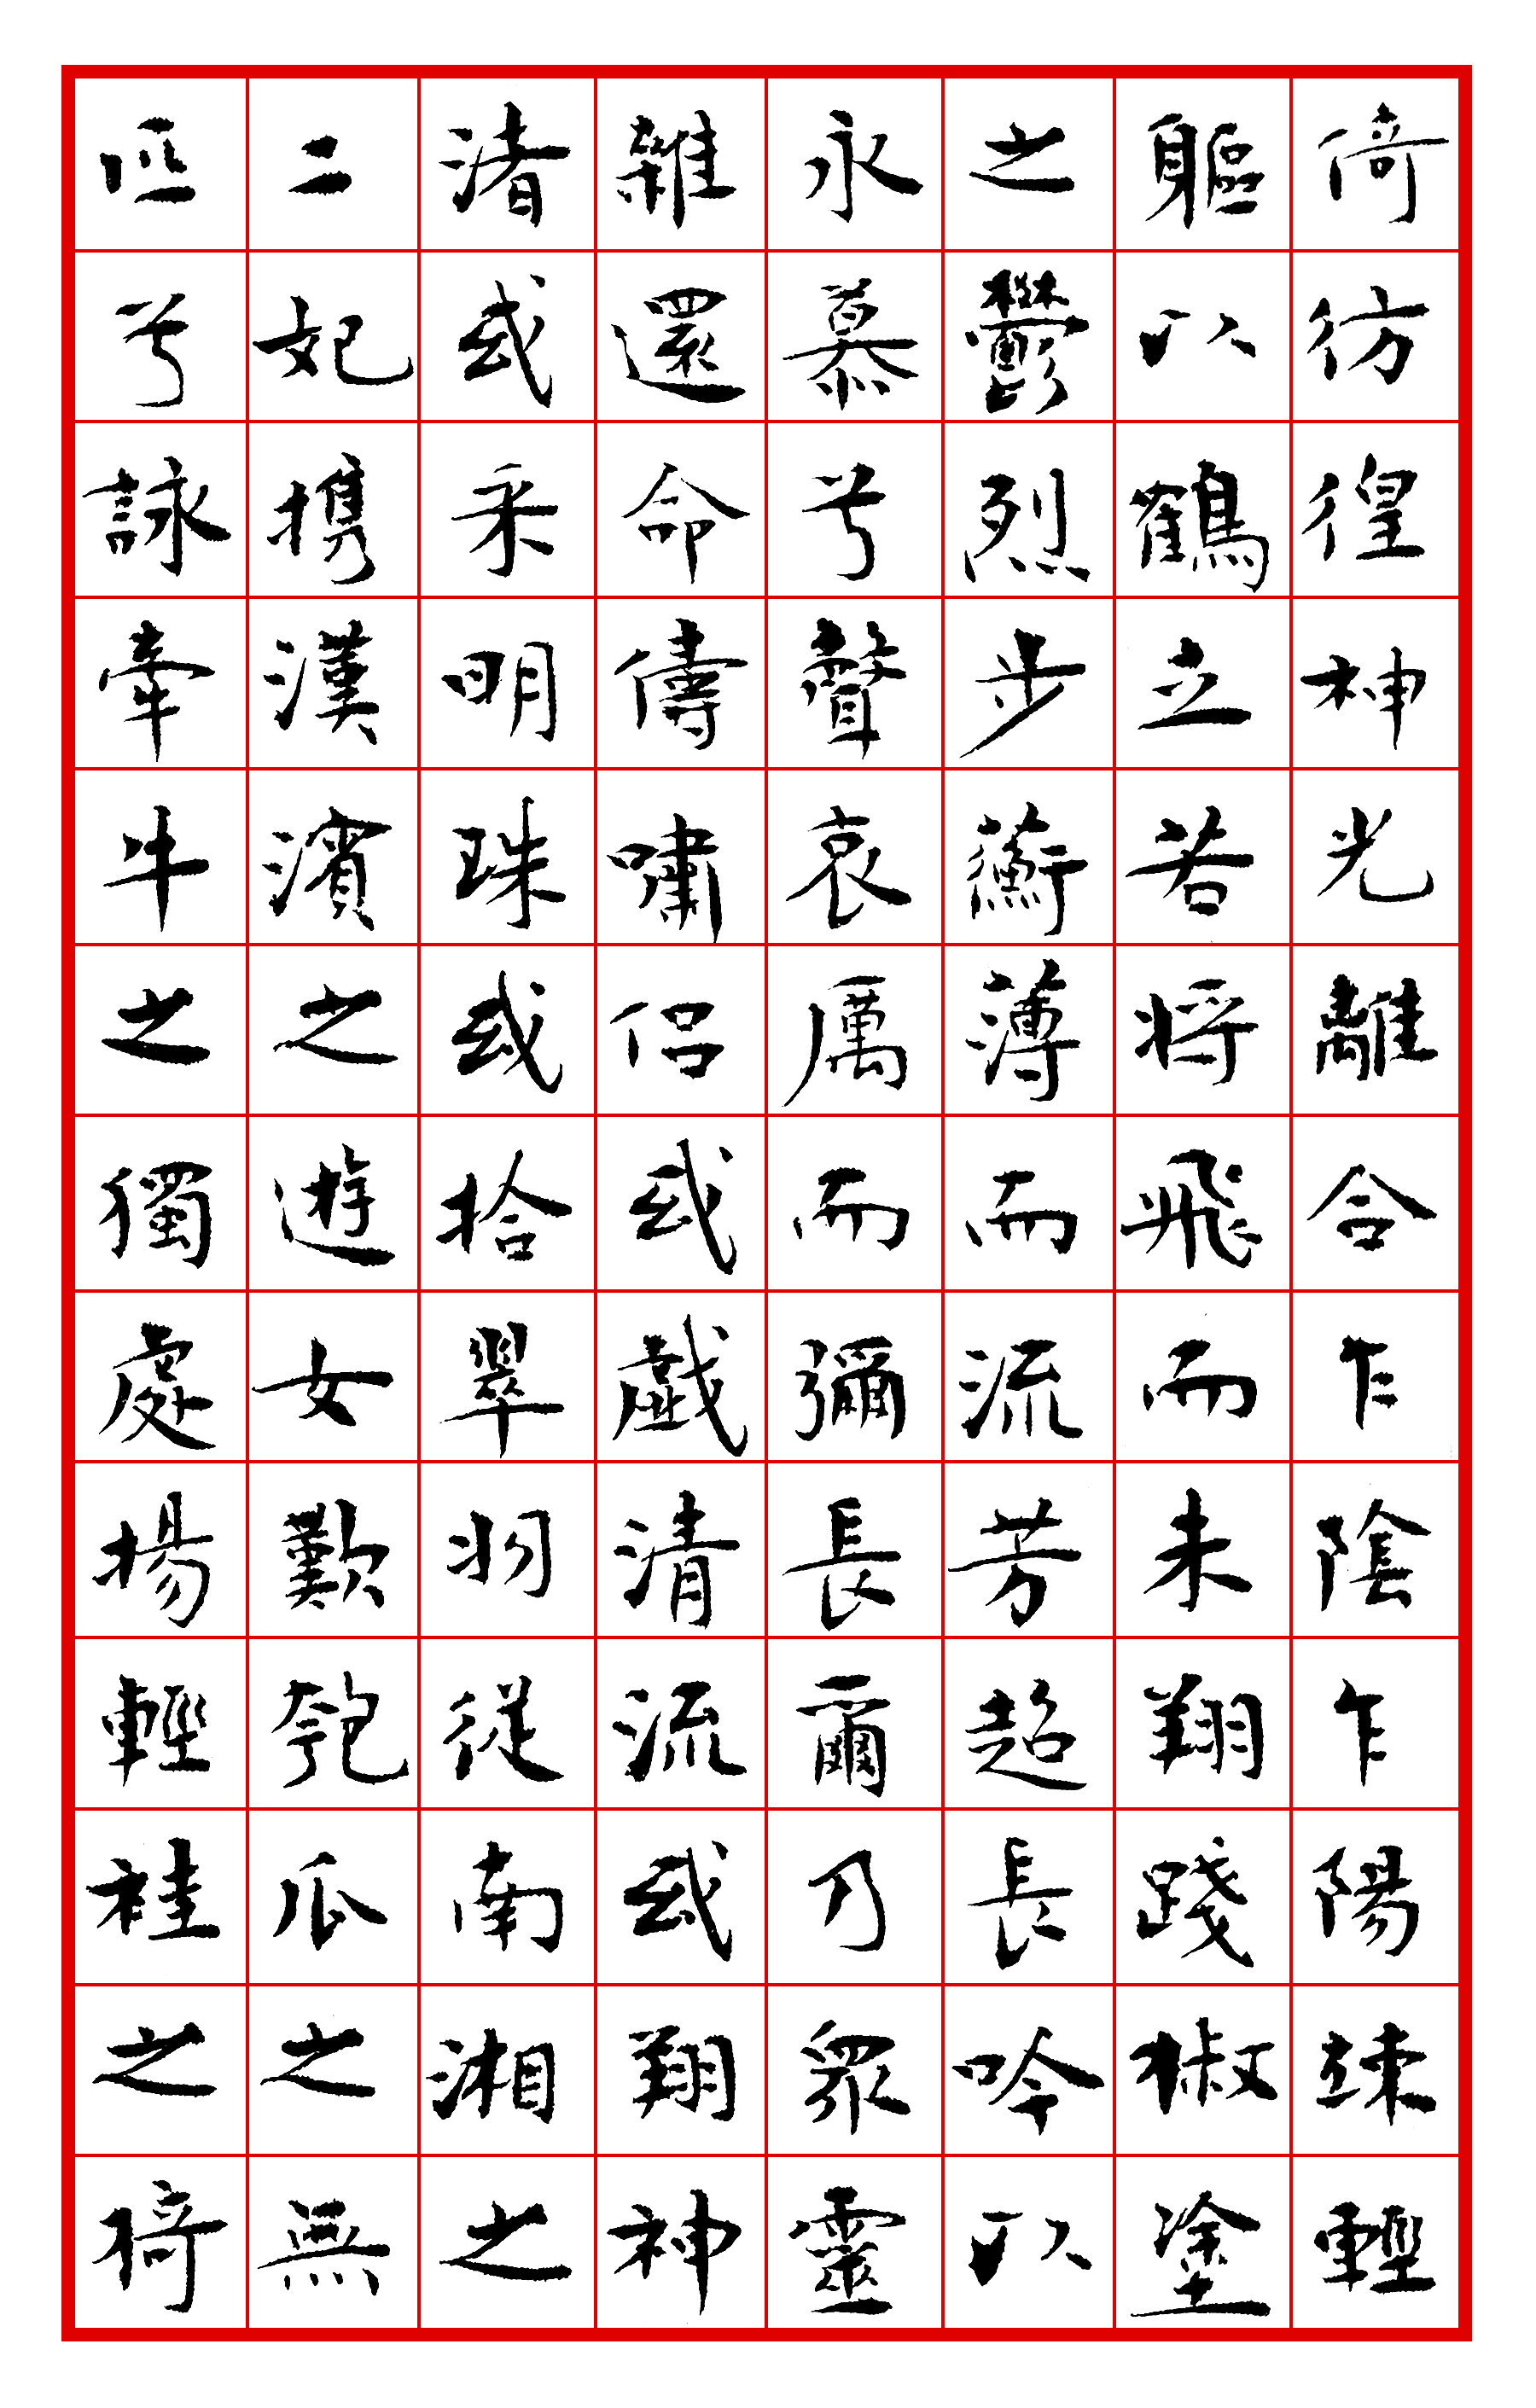 倚彷徨神光離合乍陰乍陽竦輕
軀以鶴立若將飛而未翔踐椒塗
之鬱烈步蘅薄而流芳超長吟以
永慕兮聲哀厲而彌長爾乃眾靈
雜還命儔嘯侣或戲清流或翔神
渚或采明珠或拾翠羽從南湘之
二妃攜漢濱之遊女歎匏瓜之無
匹兮詠牽牛之獨處揚輕袿之猗